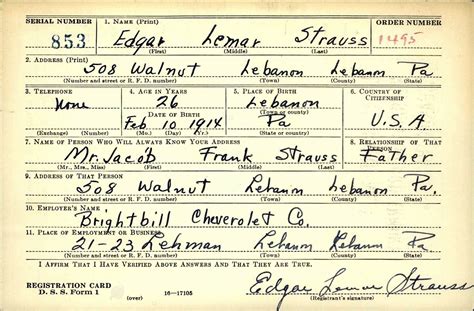 SERIAL NUMBER 1. NAME (Print) ORDER NUMBER
853 Edgar Lemar Strauss 1495
(First) (Middle) (Last)
2. ADDRESS (Print)
508 Walnut Lebanon Lebanon Pa
(Number and street or R. F. D. number) (Town) (County) (State)
3. TELEPHONE 4. AGE IN YEARS 5. PLACE OF BIRTH 6. COUNTRY OF CITIZENSHIP
None 26 Lebanon
DATE OF BIRTH (Town or county)
Feb 10, 1914 Pa U.S.A
(Exchange) (Number) (Mo.) (Day) (Yr.) (State or country)
7. NAME OF PERSON WHO WILL ALWAYS KNOW YOUR ADDRESS 8. RELATIONSHIP OF THAT PERSON
Mr. Jacob Frank Strauss Father
(Mr., Mrs., Miss) (First) (Middle) (Last)
9. ADDRESS OF THAT PERSON
508 Walnut Lebanon Lebanon Pa.
(Number and street or R. F. D. number) (Town) (County) (State)
10. EMPLOYER'S NAME
Brightbill Cheverolet Co.
11. PLACE OF EMPLOYMENT OR BUSINESS
21-23 Lehman Lebanon Lebanon Pa
(Number and street or R. F. D. number) (Town) (County) (State)
I AFFIRM THAT I HAVE VERIFIED ABOVE ANSWERS AND THAT THEY ARE TRUE.
REGISTRATION CARD
D. S. S. Form 1 (over) 16—17105
Edgar Lemar Strauss
(Registrant's signature)